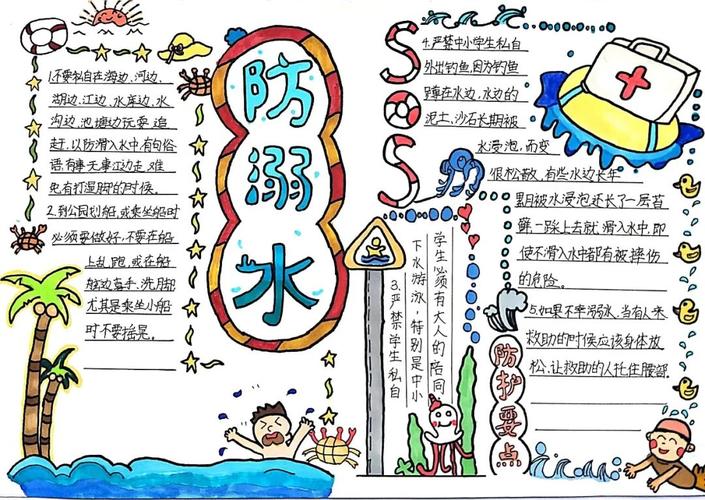 防溺水
1.不要私自在海边、河边、
湖边、江边、水库边、水
沟边、池塘边玩耍、追
赶,以防滑入水中有句俗
语,有事无事江边走,难
免有打湿脚的时候。
2.到公园划船,或乘坐船时
必须要做好,不要在船
上乱跑,或在船
舷边洗手、洗脚
尤其是乘坐小船
时不要摇晃。
3.严禁学生私自
下水游泳,特别是中小
学生必须有大人的陪同
SOS
4.严禁中小学生私自
外出钓鱼,因为钓鱼
蹲在水边,水边的
泥土、沙石长期被
水浸泡,而变
很松散,有些水边长年
累月被水浸泡还长了一层苔
藓一踩上去就滑入水中,即
使不滑入水中都有被摔伤
的危险。
防护要点
5.如果不幸溺水,当有人来
救助的时候应该身体放
松,让救助的人托住腰部